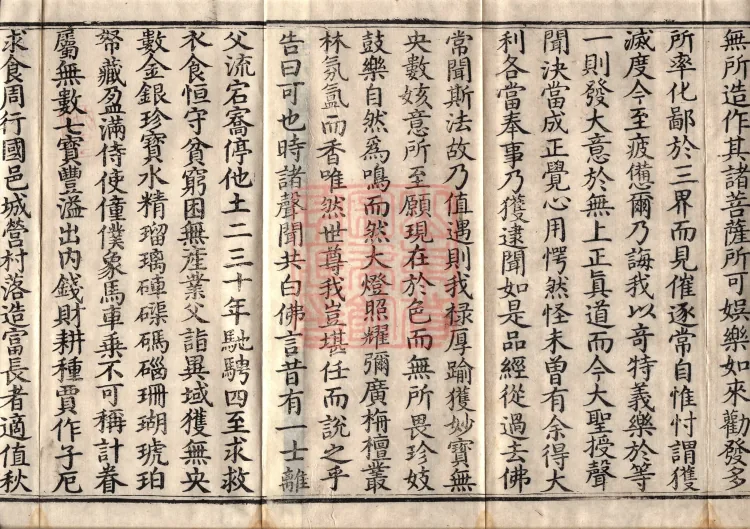 無所造作其諸菩薩所可娛樂如來勸發多
所率化鄙於三界而見催逐常自惟忖謂獲
滅度今至疲憊爾乃誨我以奇特義樂於等
一則發大意於無上正真道而今大聖授聲
聞決當成正覺心用愕然怪未曾有余得大
利各當奉事乃獲逮聞如是品經從過去佛
常聞斯法故乃值遇則我祿厚踰獲妙寶無
央數姟意所至願現在於色而無所畏珍妓
鼓樂自然為鳴而然大燈照耀彌廣栴檀叢
林氛氳而香唯然世尊我豈堪任而說之乎
告曰可也時諸聲聞共白佛言昔有一士離
父流宕喬停他土二三十年馳騁四至求救
衣食恒守貧窮困無產業父詣異域獲無央
數金銀珍寶水精瑠璃硨磲碼碯珊瑚琥珀
帑藏盈滿侍使僮僕象馬車乘不可稱計眷
屬無數七寶豐溢出內錢財耕種賈作子厄
求食周行國邑城營村落造富長者適值秋